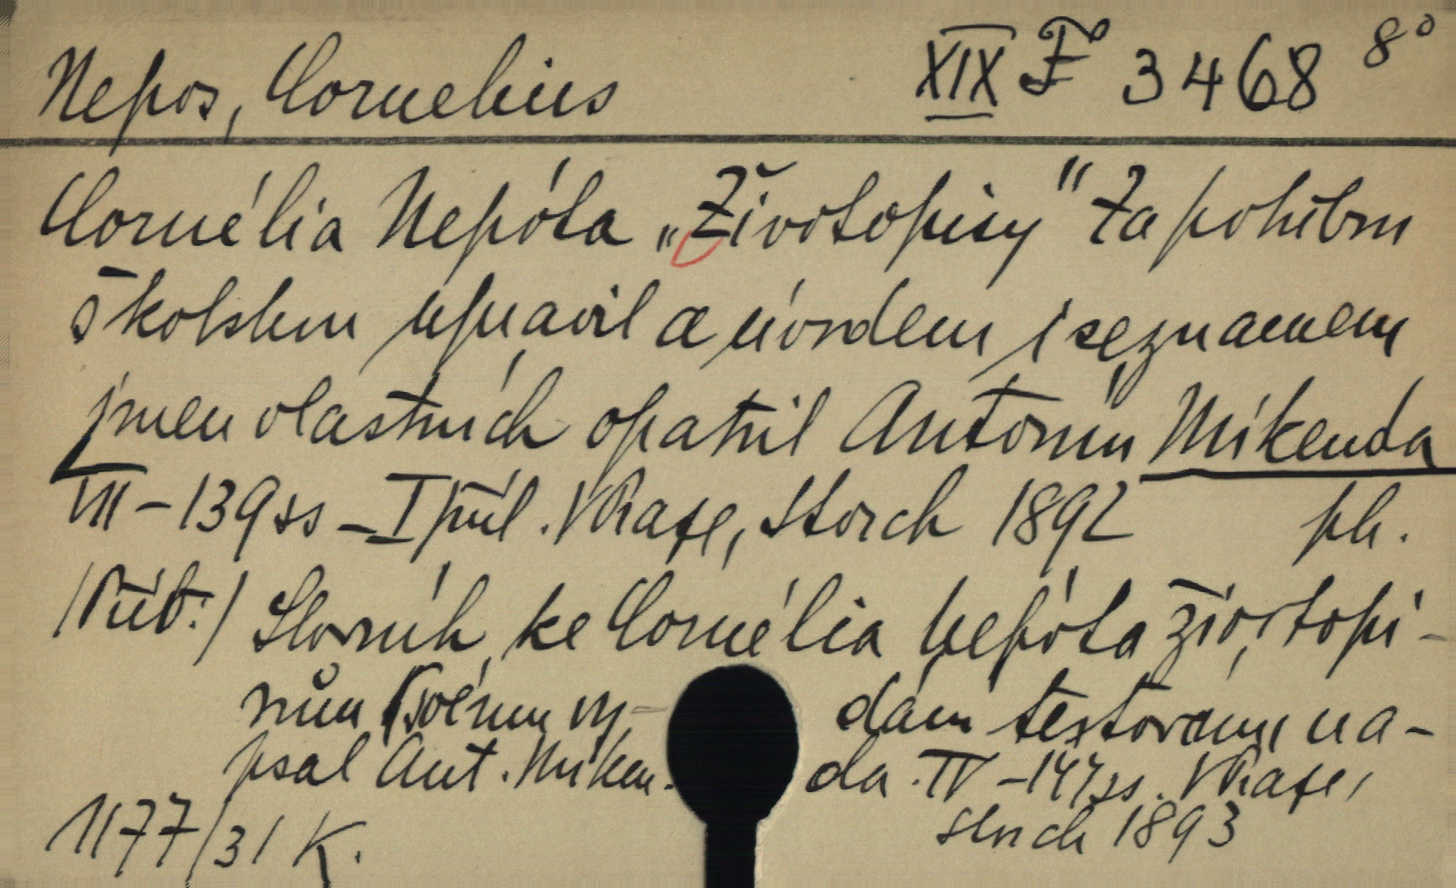 Nepos, Cornelius XIX F 3468 8°
Cornélia Nepóta „Životopisy" Ku potřebám
školským upravil a úvodem i seznamem
jmen vlastních opatřil Antonín Mikenda
VII – 139 ss – I příl. V Praze, Storch 1892 ph.
/Příb:/ Slovník ke Cornélia Nepóta životopi-
sům k svému vy- dání textovému na-
psal Ant. Miken- da. IV – 147 ss. V Praze,
Storch 1893
1177/31 K.